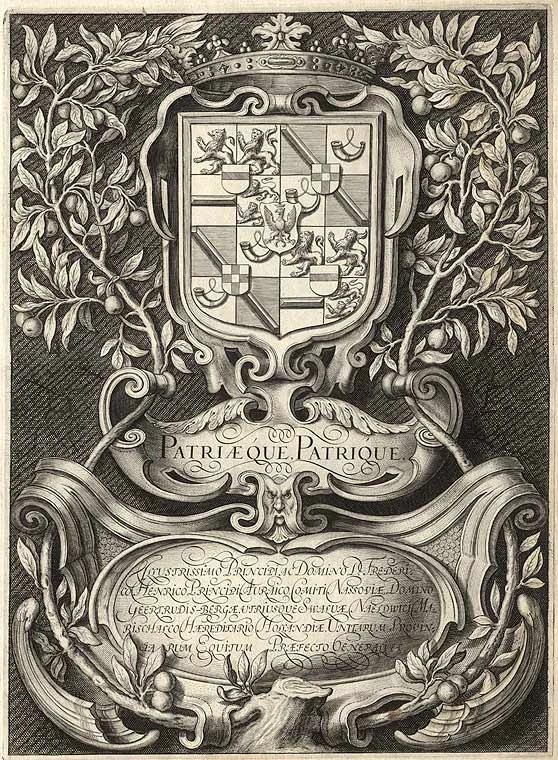 PATRIÆQUE. PATRIQUE.
ILLUSTRISSIMO PRINCIPI AC DOMINO D. FREDERI-
CO HENRICO PRINCIPI AURAICO COMITI NASSOVIÆ, DOMINO
GEERTRUDIS-BERGÆ, UTRIUSQUE SWALUÆ, NAELDWICI, MA-
RISCHALCO HÆREDITARIO HOLANDIÆ, UNITARUM PROVIN-
CIARUM EQUITUM PRÆFECTO GENERALI etc.